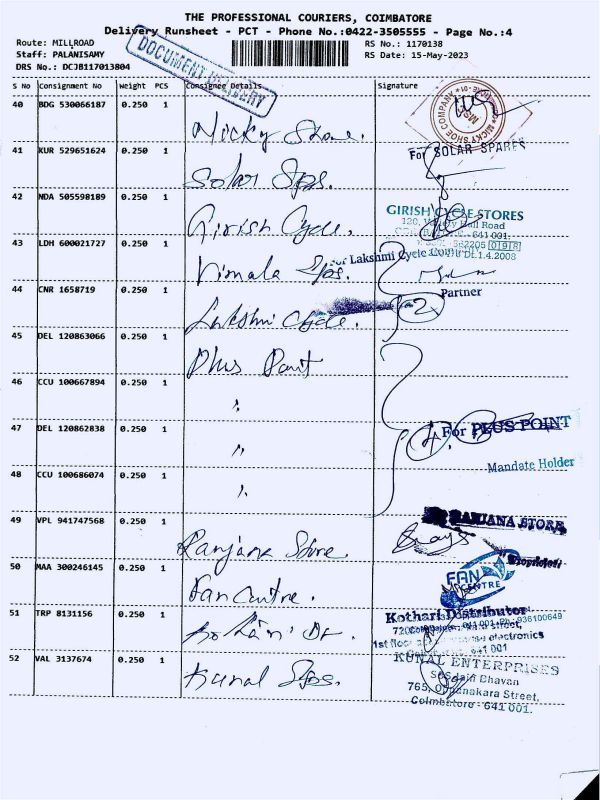 THE PROFESSIONAL COURIERS, COIMBATORE
Delivery Runsheet - PCT - Phone No.:0422-3505555 - Page No.:4
Route: MILLROAD
Staff: PALANISAMY
DRS No.: DCJB117013804
RS No.: 1170138
RS Date: 15-May-2023
DOCUMENT DELIVERY
S No Consignment No Weight PCS Consignee Details Signature
40 BDG 530066187 0.250 1
Micky Shoe.
MICKY SHOE COMPANY
41 KUR 529651624 0.250 1
Solar Sps.
For SOLAR SPARES
42 NDA 505598189 0.250 1
Girish Cycle.
GIRISH CYCLE STORES
120, Road
641 001
582205 0918
Dt.1.4.2008
43 LDH 600021727 0.250 1
Vimala Sps.
For Lakshmi Cycle
Partner
44 CNR 1658719 0.250 1
Lakshmi Cycle.
2
45 DEL 120863066 0.250 1
Plus Point
46 CCU 100667894 0.250 1
"
47 DEL 120862838 0.250 1
"
4
For PLUS POINT
Mandate Holder
48 CCU 100686074 0.250 1
"
49 VPL 941747568 0.250 1
Ranjana Store.
RANJANA STORE
Proprietor
50 MAA 300246145 0.250 1
Fan Centre.
FAN CENTRE
51 TRP 8131156 0.250 1
Kothari Dt
Kothari Distributor
street,
1st floor electronics
641 001
52 VAL 3137674 0.250 1
Kunal Sps.
KUNAL ENTERPRISES
Bhavan
765, Oppanakara Street,
Coimbatore - 641 001.